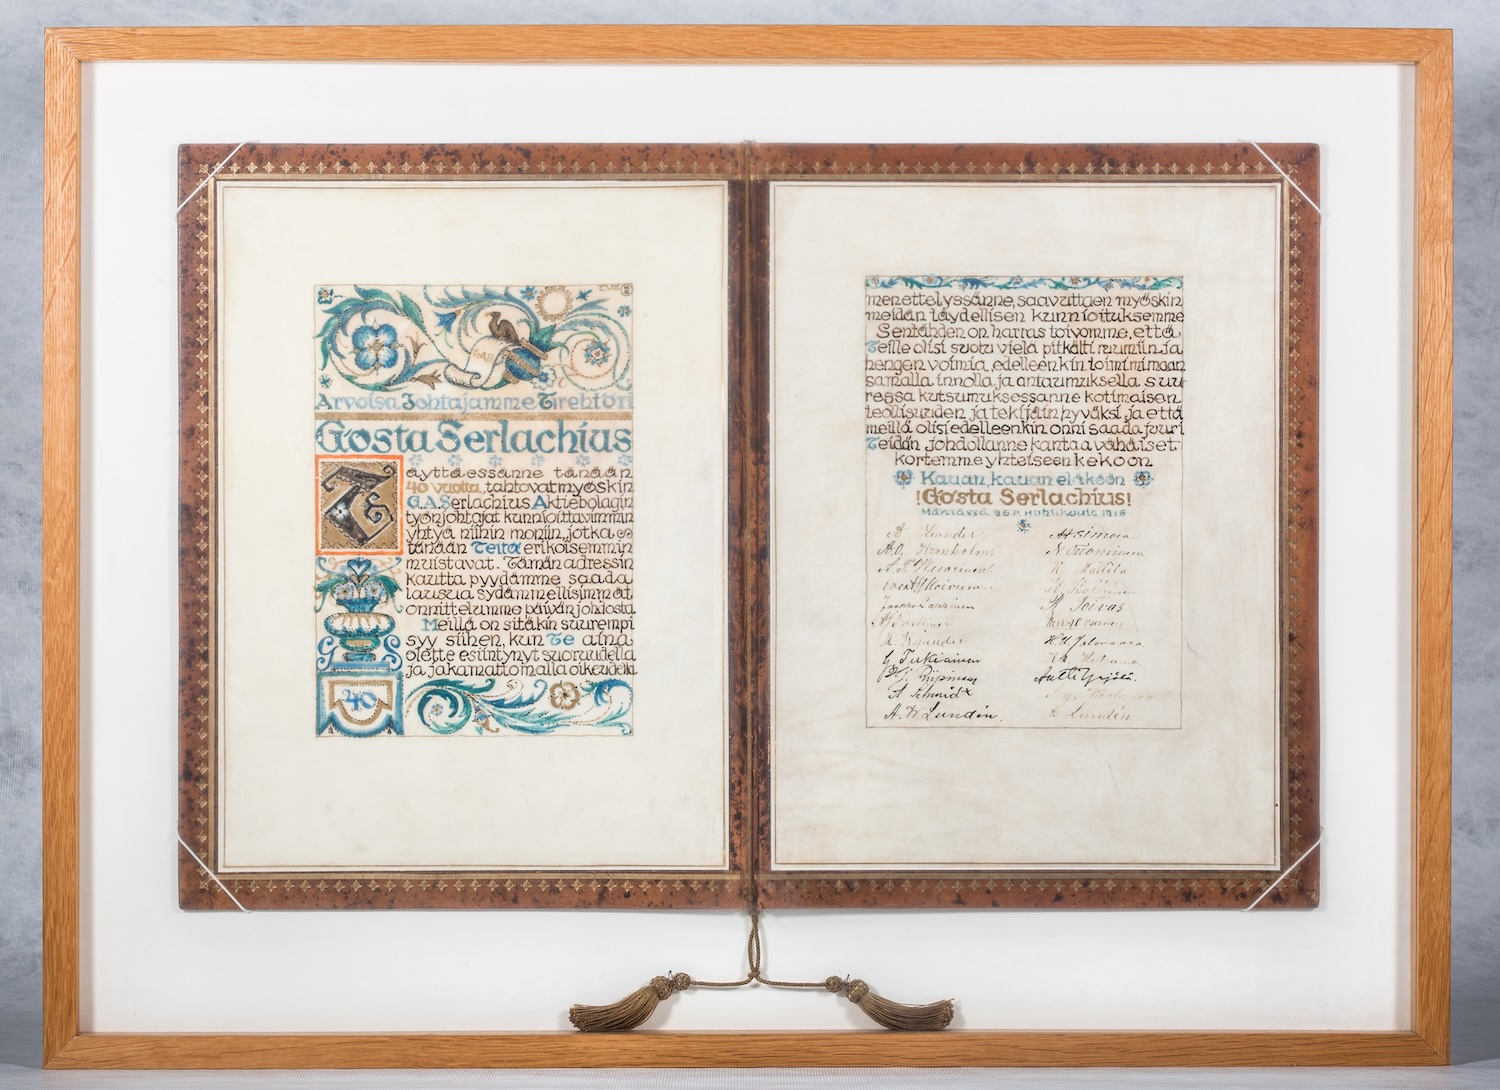 GAS
Arvoisa Johtajamme Tirehtöri
Gösta Serlachius
Täyttäessänne tänään
40 vuotta, tahtovat myöskin
G.A. Serlachius Aktiebolagin
työnjohtajat kunnioittavimmin
yhtyä niihin moniin, jotka
tänään Teitä erikoisemmin
muistavat. Tämän adressin
kautta pyydämme saada
lausua sydämmellisimmät
onnittelumme päivän johdosta.
Meillä on sitäkin suurempi
syy siihen, kun Te aina
olette esiintynyt suoruudella
ja jakamattomalla oikeudella
40
menettelyssänne, saavuttaen myöskin
meidän täydellisen kunnioituksemme
Sentähden on harras toivomme, että
Teille olisi suotu vielä pitkälti ruumiin ja
hengen voimia, edelleenkin toimimaan
samalla innolla ja antaumuksella suu-
ressa kutsumuksessanne kotimaisen
teollisuuden ja tekijäin hyväksi ja että
meillä olisi edelleenkin onni saada juuri
Teidän johdollanne kantaa vähäiset
kortemme yhteiseen kekoon
Kauan, kauan eläköön
!Gösta Serlachius!
Mäntässä 26 p. Huhtikuuta 1916
A Leander
A.O. Kronholm
K. Mattila
Toivas
A Kjander
G Tukiainen
Antti Yrjölä.
A Schmidt
A. W. Lundén.
Lundén